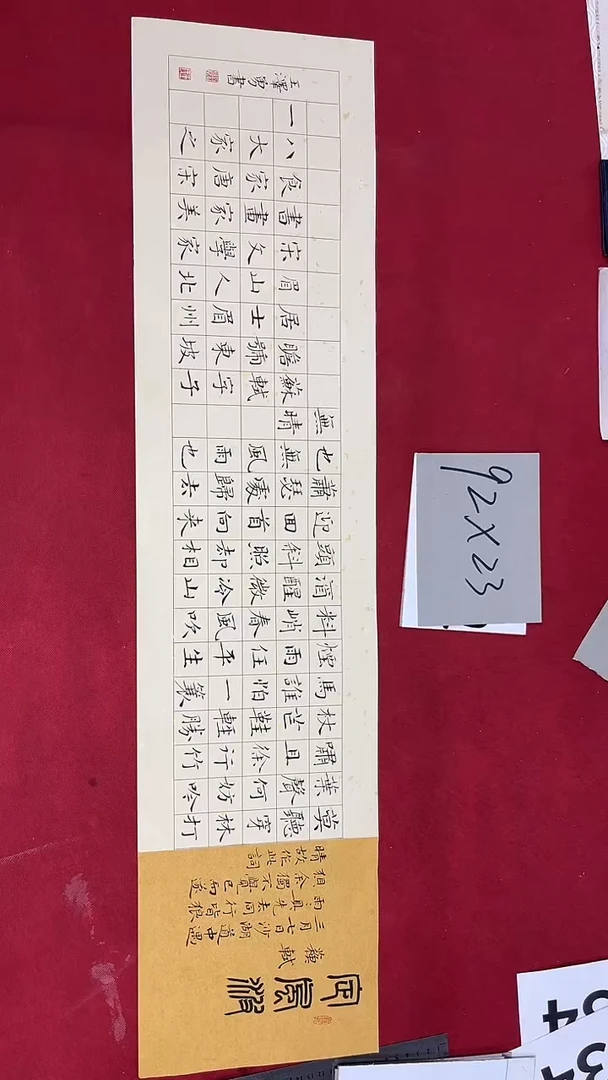 定風波
蘇軾
三月七日沙湖道中遇
雨雨具先去同行皆狼
狽余獨不覺已而遂
晴故作此詞
莫聽穿林打
葉聲何妨吟
嘯且徐行竹
杖芒鞋輕勝
馬誰怕一簑
煙雨任平生
料峭春風吹
酒醒微冷山
頭斜照却相
迎回首向來
蕭瑟處歸去
也無風雨也
無晴
蘇軾字子
瞻號東坡
居士眉州
眉山人北
宋文學家
書畫家美
食家唐宋
八大家之
一
王澤勇書
92X23
34